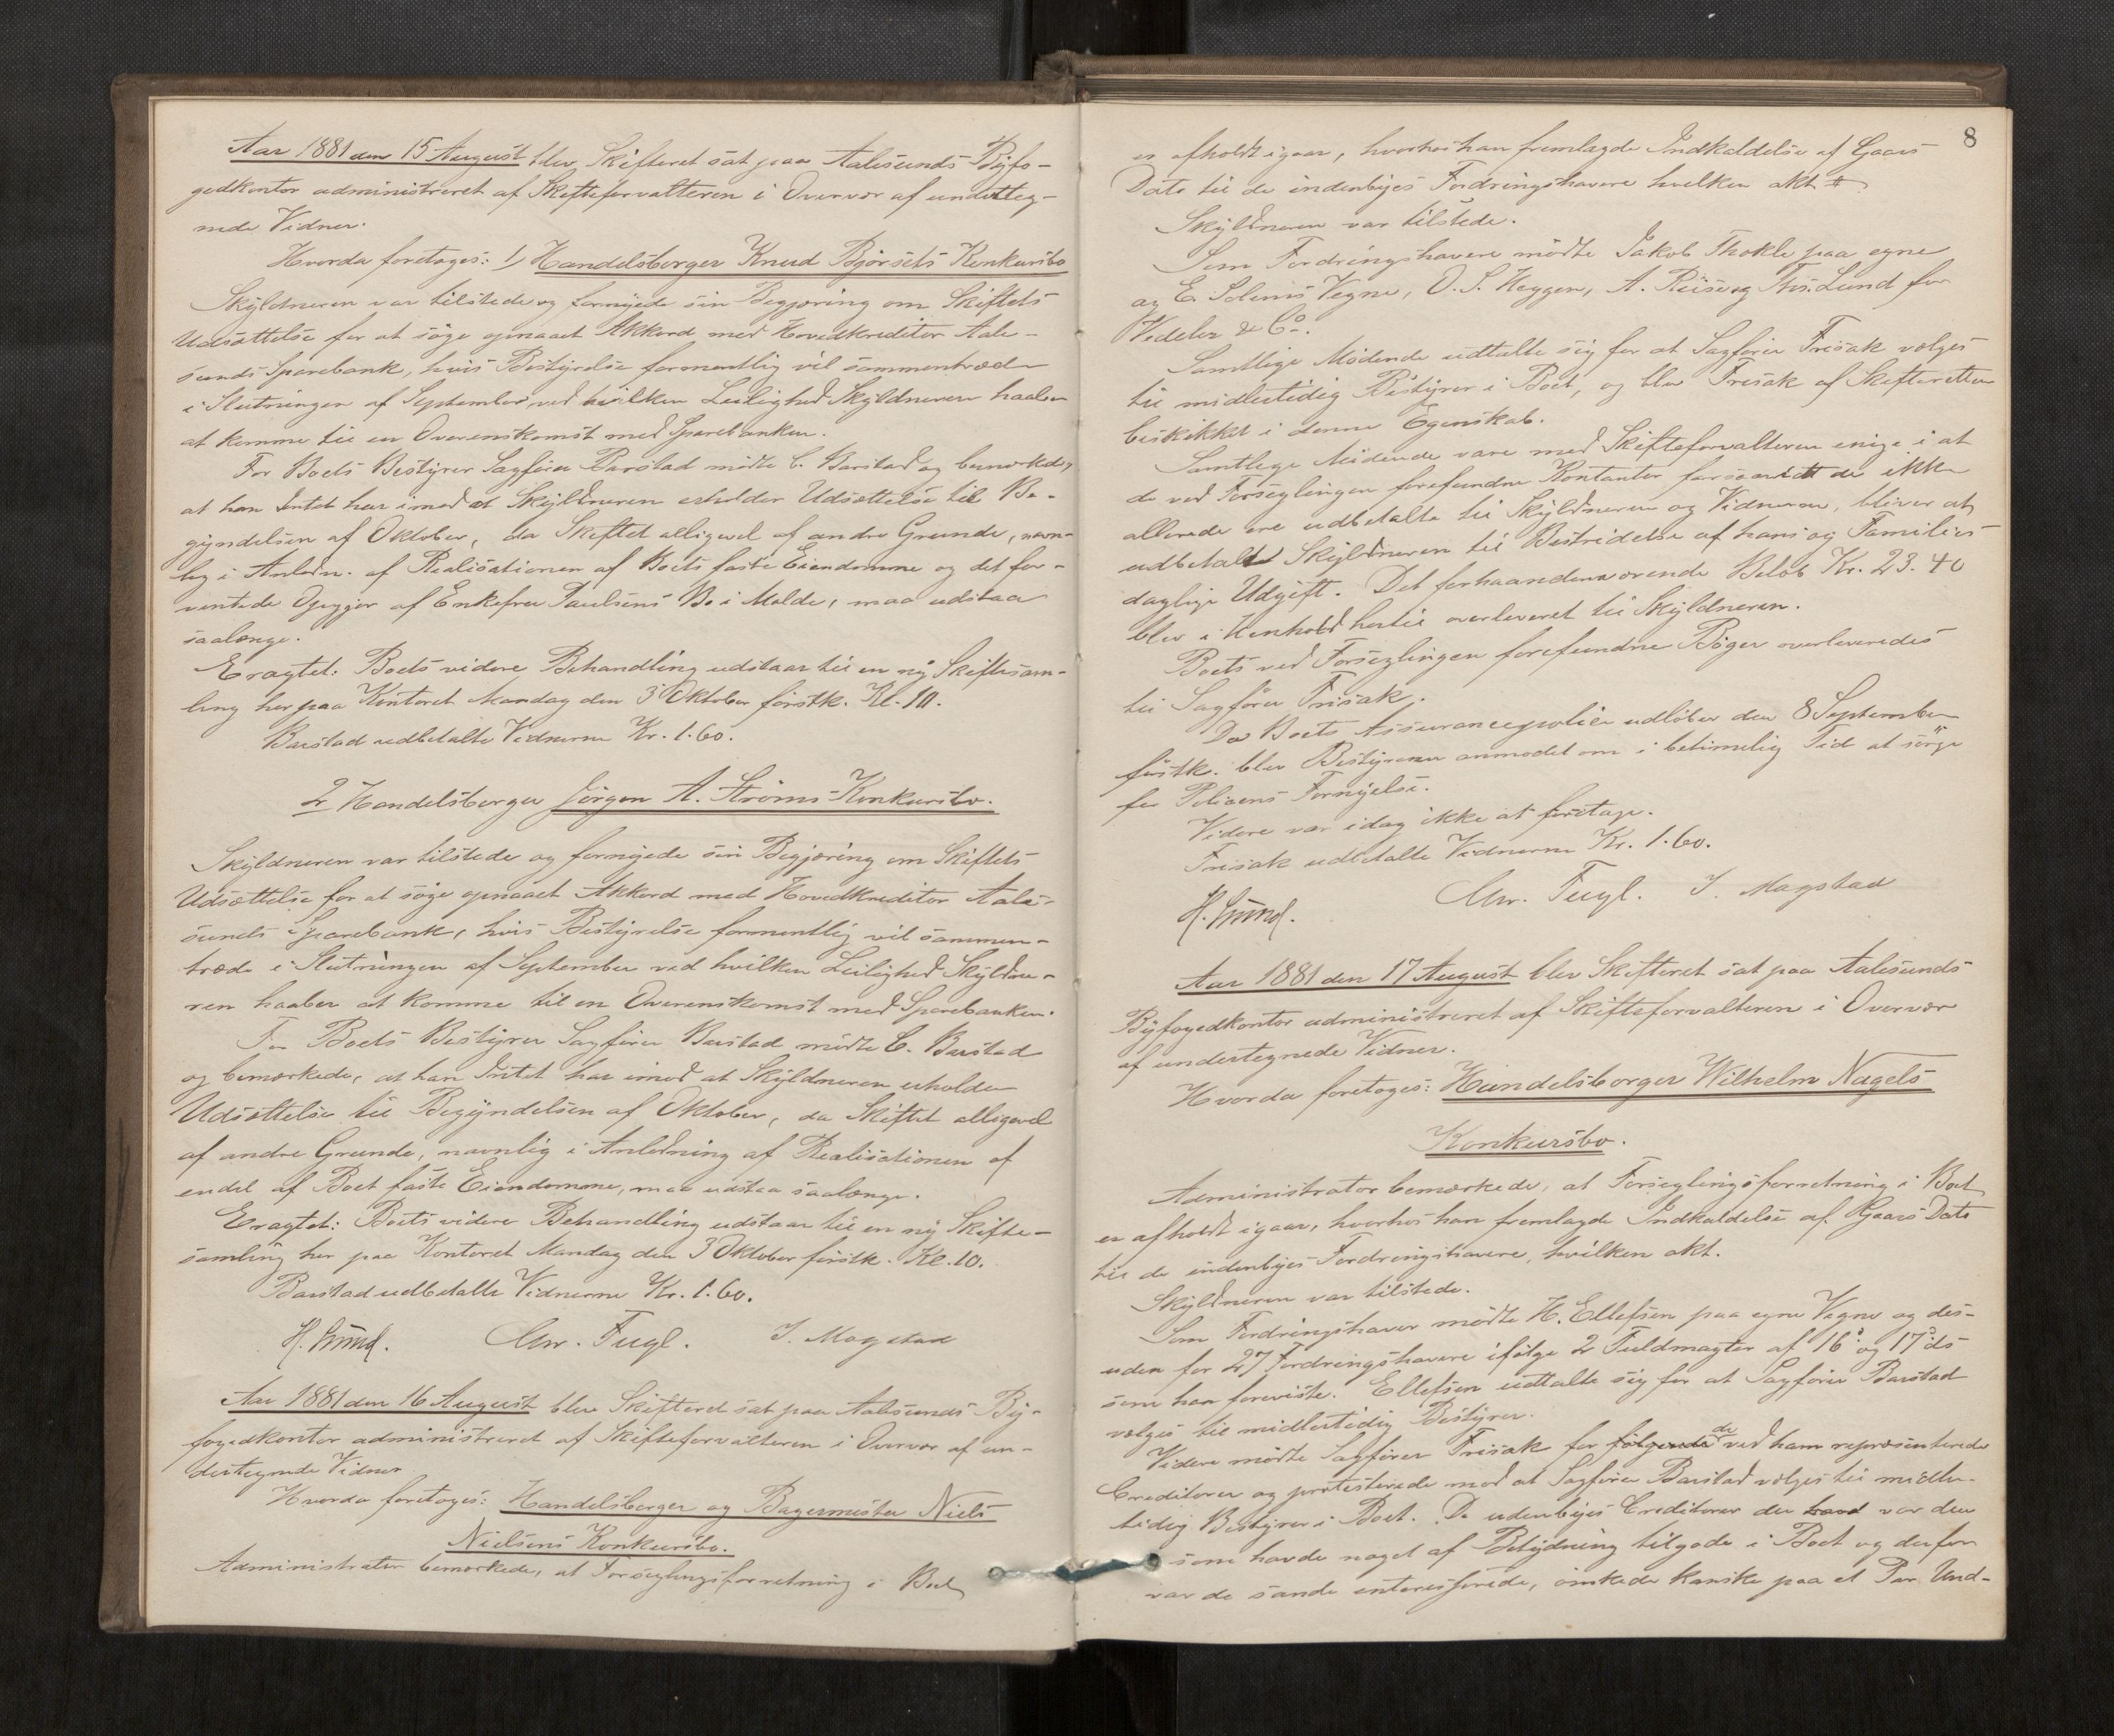 Aar 1881 den 15 August blev Skifteret sat paa Aalesunds Byfo-
gedkontor administreret af Skifteforvalteren i Overvær af underteg-
nede Vidner.
Hvorda foretoges: 1, Handelsborger Knud Bjørsets Konkursbo
Skyldneren var tilstede og fornyede sin Begjæring om Skiftets
Udsættelse for at søge opnaaet Akkord med Hovedkreditor Aale-
sunds Sparebank, hvis Bestyrelse formentlig vil sammentræde
i Slutningen af September, ved hvilken Leilighed Skyldneren haaber
at komme til en Overenskomst med Sparebanken.
For Boets Bestyrer Sagfører Barstad mødte C. Barstad og bemærkede,
at han Intet har imod at Skyldneren erholder Udsættelse til Be-
gyndelsen af Oktober, da Skiftet alligevel af andre Grunde, navn-
lig i Anledn. af Realisationen af Boets faste Eiendomme og det for-
ventede Opgjør af Enkefru Paulsens Bo i Molde, maa udstaa
saalænge.
Eragtet: Boets videre Behandling udstaar til en ny Skiftesam-
ling her paa Kontoret Mandag den 3 Oktober førstk. Kl. 10.
Barstad udbetalte Vidnerne Kr. 1.60.
2, Handelsborger Jørgen A. Strøms Konkursbo.
Skyldneren var tilstede og fornyede sin Begjæring om Skiftets
Udsættelse for at søge opnaaet Akkord med Hovedkreditor Aale-
sunds Sparebank, hvis Bestyrelse formentlig vil sammen-
træde i Slutningen af September ved hvilken Leilighed Skyldne-
ren haaber at komme til en Overenskomst med Sparebanken.
For Boets Bestyrer Sagfører Barstad mødte C. Barstad
og bemærkede, at han Intet har imod at Skyldneren erholder
Udsættelse til Begyndelsen af Oktober, da Skiftet alligevel
af andre Grunde, navnlig i Anledning af Realisationen af
endel af Boet faste Eiendomme, maa udstaa saalænge.
Eragtet: Boets videre Behandling udstaar til en ny Skifte-
samling her paa Kontoret Mandag den 3 Oktober førstk. Kl. 10.
Barstad udbetalte Vidnerne Kr. 1.60.
Chr. Fugl. J. Magstad
Aar 1881 den 16 August blev Skifteret sat paa Aalesunds By-
fogedkontor administreret af Skifteforvalteren i Overvær af un-
dertegnede Vidner
Hvorda foretoges: Handelsborger og Bagermester Niels
Nielsens Konkursbo.
Administrator bemærkede, at Forseglingsforretning i Boet
8
er afholdt igaar, hvorhos han fremlagde Indkaldelse af Gaars
Dato til de indenbyes Fordringshavere hvilken akt.
Skyldneren var tilstede.
Som Fordringshavere mødte Jakob Thokle paa egne
og E. Solems Vegne, O. S. Heggen, A. Riise og Ths. Lund for
Wedeler & Co.
Samtlige Mødende udtalte sig for at Sagfører Frisak vælges
til midlertidig Bestyrer i Boet, og blev Frisak af Skifteretten
beskikket i denne Egenskab.
Samtlige Mødende vare med Skifteforvalteren enige i at
de ved Forseglingen forefundne Kontanter forsaavidt de ikke
allerede ere udbetalte til Skyldneren og Vidnerne, bliver at
udbetale Skyldneren til Bestridelse af hans og Families
daglige Udgift. Det forhaandenværende Beløb Kr. 23.40
blev i Henhold hertil overleveret til Skyldneren.
Boets ved Forseglingen forefundne Bøger overleveredes
til Sagfører Frisak.
Da Boets Assurancepolice udløber den 8 September
førstk. blev Bestyreren anmodet om i betimelig Tid at sørge
for Policens Fornyelse.
Videre var idag ikke at foretage.
Frisak udbetalte Vidnerne Kr. 1.60.
Chr. Fugl. J. Magstad
Aar 1881 den 17 August blev Skifteret sat paa Aalesunds
Byfogedkontor administreret af Skifteforvalteren i Overvær
af undertegnede Vidner.
Hvorda foretoges: Handelsborger Wilhelm Nagels
Konkursbo.
Administrator bemærkede, at Forseglingsforretning i Boet
er afholdt igaar, hvorhos han fremlagde Indkaldelse af Gaars Dato
til de indenbyes Fordringshavere, hvilken akt.
Skyldneren var tilstede.
Som Fordringshaver mødte H. Ellefsen paa egne Vegne og des-
uden for 27 Fordringshavere ifølge 2 Fuldmagter af 16de og 17de ds
som han foreviste. Ellefsen udtalte sig for at Sagfører Barstad
vælges til midlertidig Bestyrer.
Videre mødte Sagfører Frisak for følgende de ved ham repræsenterede
Creditorer og protesterede mod at Sagfører Barstad vælges til midler-
tidig Bestyrer i Boet. De udenbyes Creditorer der var dem
som havde noget af Betydning tilgode i Boet og derfor
var de sande interesserede, ønskede kanske paa et Par Und-